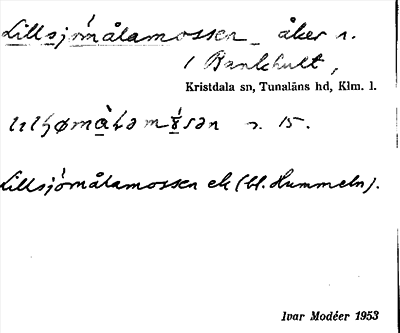 Lillsjömålamossen åker n.
i Bankhult,
Kristdala sn, Tunaläns hd, Klm. l.
n. 15.
Lillsjömålamossen ek (bl. Hummeln).
Ivar Modéer 1953